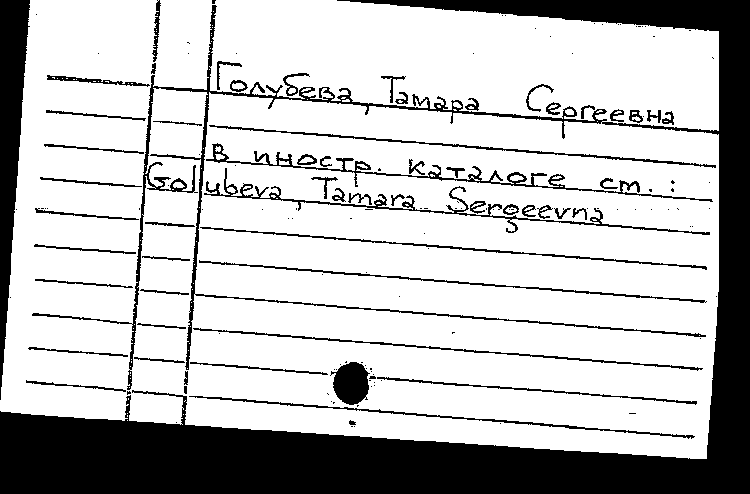 Голубева, Тамара Сергеевна
в иностр. каталоге см. :
Golubeva, Tamara Sergeevna